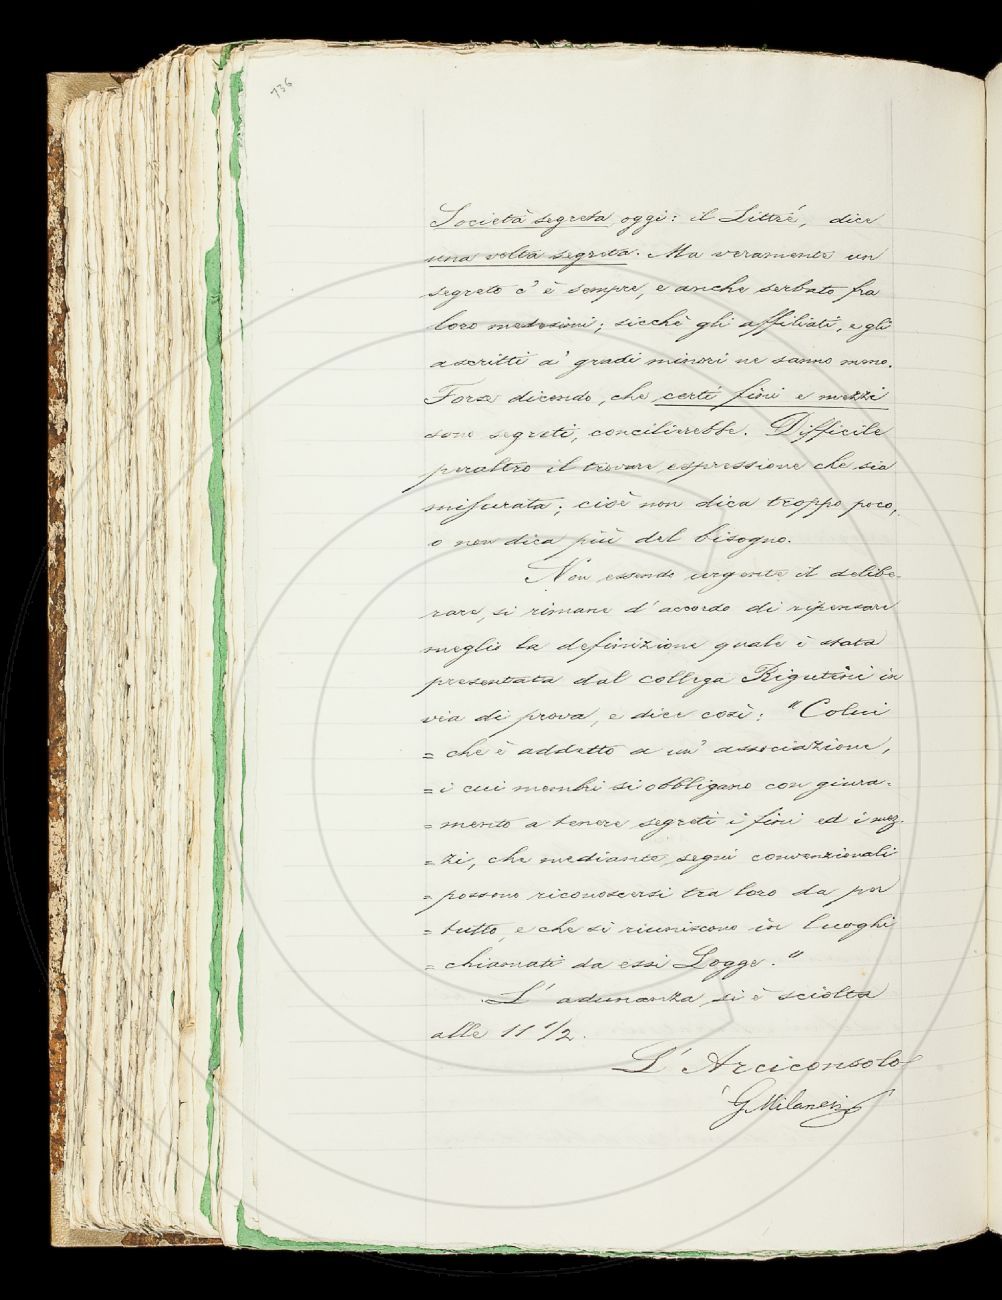 736
Società segreta oggi: il Littré, dice
una volta segreta. Ma veramente un
segreto c' è sempre, e anche serbato fra
loro medesimi; sicchè gli affiliati, e gli
ascritti a' gradi minori ne sanno meno.
Forse dicendo, che certi fini e mezzi
sono segreti, concilierebbe. Difficile
peraltro il trovare espressione che sia
misurata; cioè non dica troppo poco,
o non dica più del bisogno.
Non essendo urgente il delibe-
rare, si rimane d' accordo di ripensare
meglio la definizione quale è stata
presentata dal collega Rigutini in
via di prova, e dice così: "Colui
= che è addetto a un' associazione,
= i cui membri si obbligano con giura-
= mento a tenere segreti i fini ed i mez-
= zi, che mediante segni convenzionali
= possono riconoscersi tra loro da per
= tutto, e che si riuniscono in luoghi
= chiamati da essi Logge."
L' adunanza si è sciolta
alle 11 1/2.
L' Arciconsolo
G Milanesi